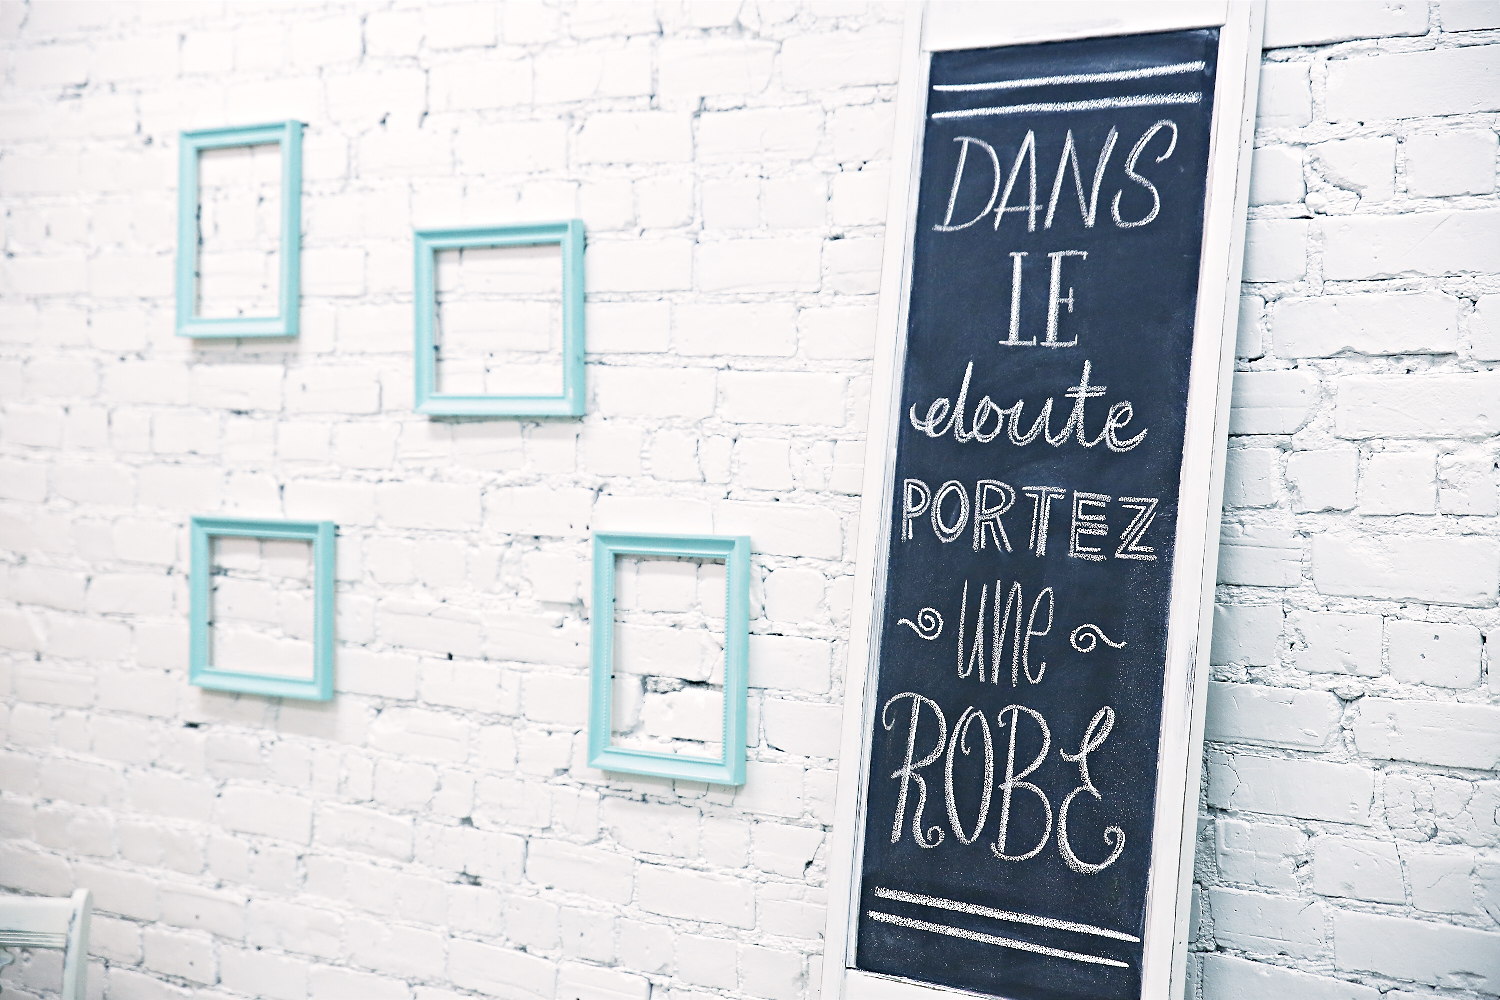 DANS
LE
doute
PORTEZ
une
ROBE